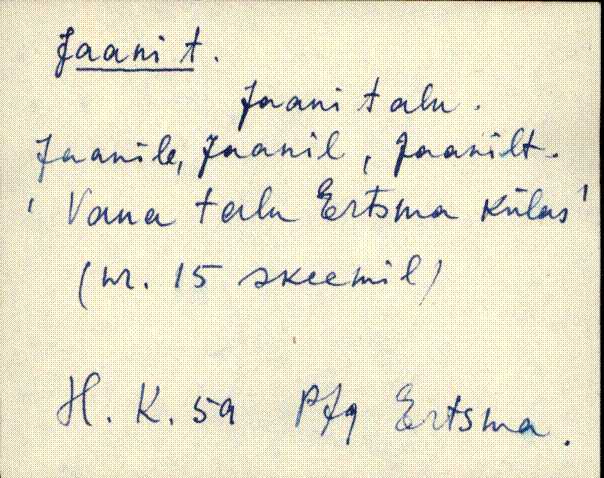 Jaani t.
Jaani talu.
Jaanile, Jaanil, Jaanilt.
' Vana talu Ertsma külas '
(nr. 15 skeemil)
H. K. 59 Pfg Ertsma.